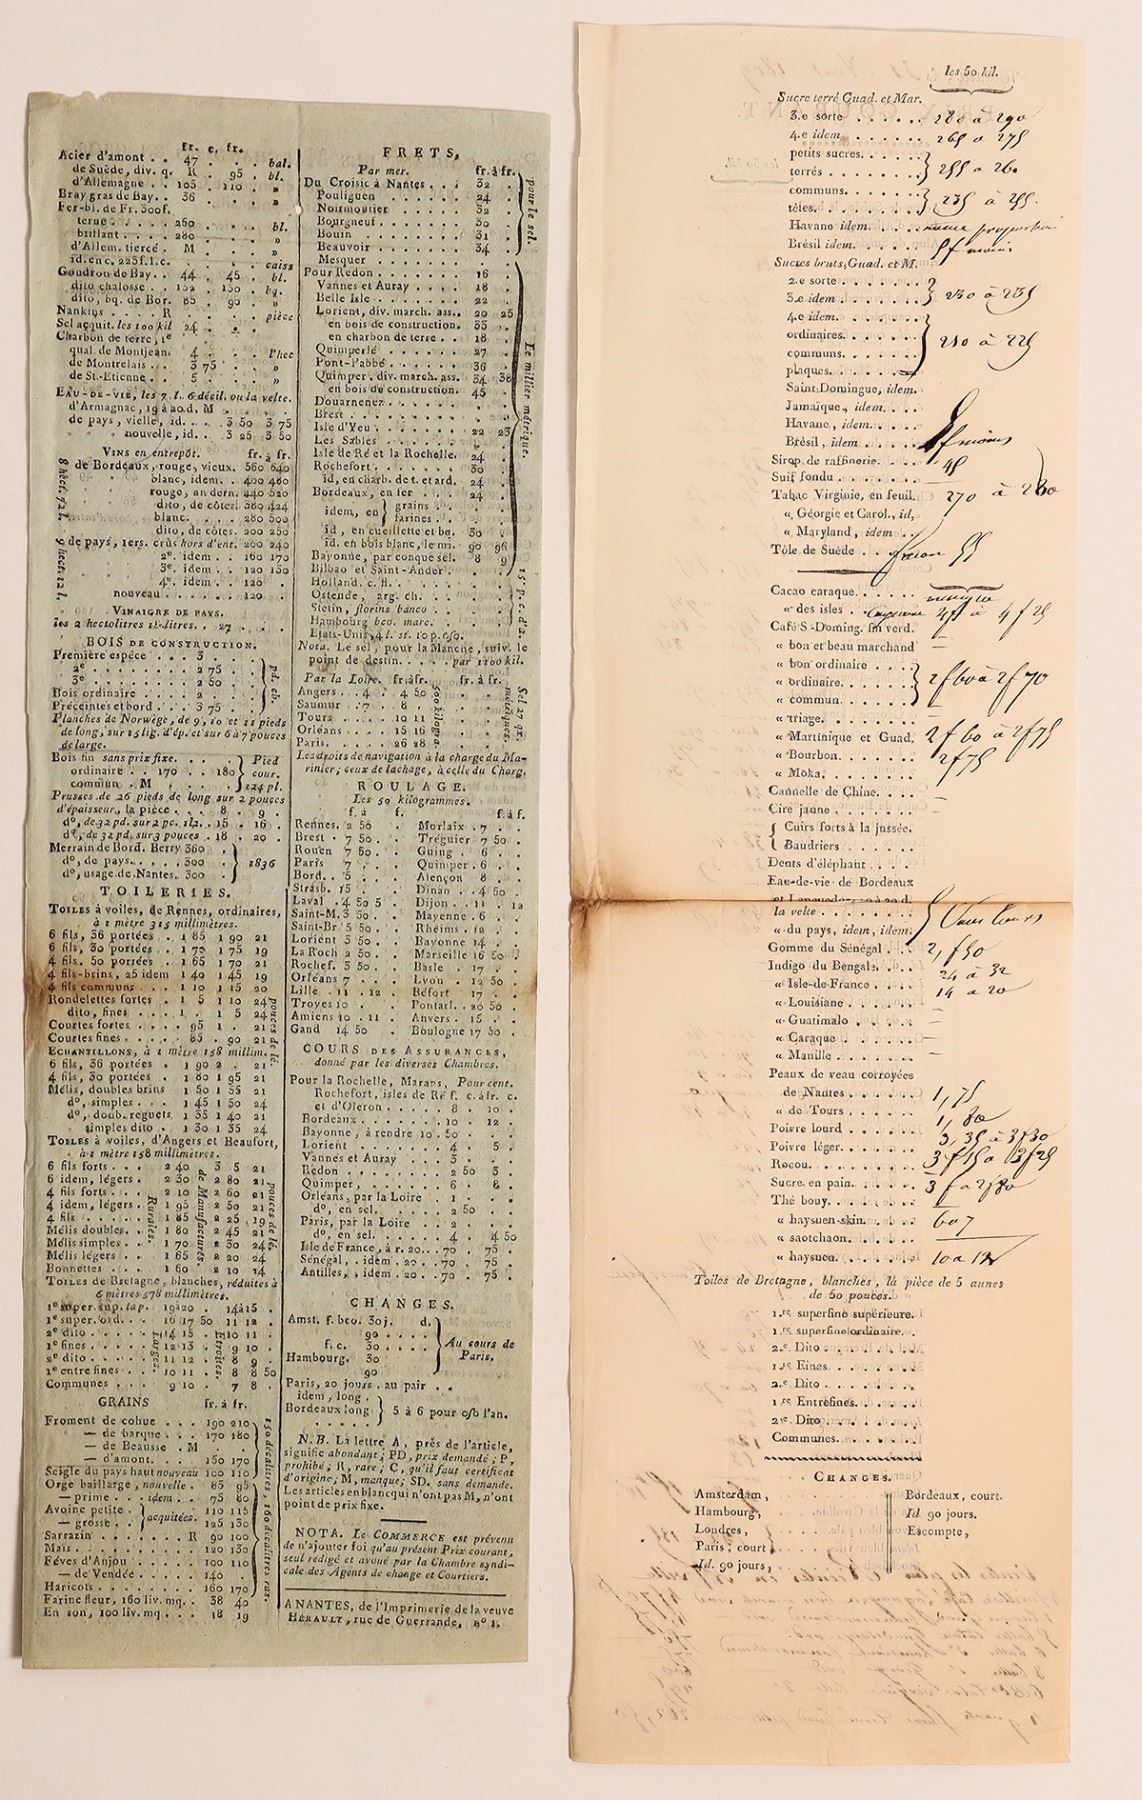 fr. c. fr.
Acier d'amont . . 47 . . . bal.
de Suède, div. q. R . 95 . bl.
d'Allemagne . . 105 . 110 . »
Bray gras de Bay. . 36 . . . »
Fer-bl. de Fr. 300 f.
terne . . . . . 260 . . . bl.
brillant . . . . 280 . . . »
d'Allem. tiercé . M . . . »
id. en c. 225 f. l. c. . . . . caiss
Goudron de Bay. . 44 . 45 . bl.
dito chalosse . . 132 . 150 . bq.
dito, bq. de Bor. 85 . 90 . »
Nankins . . . . R . . . . pièce
Sel acquit. les 100 kil 24 . . .
Charbon de terre, 1e
qual. de Montjean. 4 . . . l'hec
de Montrelais . . 3 75 . . »
de St.-Etienne . . 5 . . . »
EAU-DE-VIE, les 7 l. 6 décil. ou la velte.
d'Armagnac, 19 à 20 d. M . . . .
de pays, vielle, id. . . 3 50 3 75
» nouvelle, id. . 3 25 3 50
VINS en entrepôt. fr. à fr.
de Bordeaux, rouge, vieux. 560 640
blanc, idem. . 400 480
rouge, an dern. 440 520
dito, de côtes. 380 424
blanc. . . . 280 500
dito, de côtes. 200 250
de pays, 1ers. crûs hors d'ent. 200 240
2e. idem . . 160 170
3e. idem . . 120 130
4e. idem . . 120 .
nouveau . . . . . . . 120 .
8 hect. 92 l.
9 hect. 12 l.
VINAIGRE DE PAYS.
les 2 hectolitres 18 litres. . 27 . . .
BOIS DE CONSTRUCTION.
Première espèce . . . 3 . . .
2e . . . . . . . . 2 75 . .
3e . . . . . . . . 2 50 . .
Bois ordinaire . . . . 2 . . .
Préceintes et bord . . . 3 75 . .
pd. cb.
Planches de Norwège, de 9, 10 et 11 pieds
de long, sur 15 lig. d'ép. et sur 6 à 7 pouces
de large.
Bois fin sans prix fixe. . . .
ordinaire . . 170 . . 180
commun . M . . . .
Pied
cour.
124 pl.
Prusses de 26 pieds de long sur 2 pouces
d'épaisseur, la pièce . . . 8 . 9 .
do, de 32 pd. sur 2 pc. 1/2. . 15 . 16 .
do, de 32 pd. sur 3 pouces . 18 . 20 .
Merrain de Bord. Berry 360 .
do, de pays. . . . . 300 .
do, usage de Nantes. . 300 .
1836
TOILERIES.
TOILES à voiles, de Rennes, ordinaires,
à 1 mètre 315 millimètres.
6 fils, 36 portées . 1 85 1 90 21
6 fils, 30 portées . 1 70 1 75 19
4 fils. 50 portées . 1 65 1 70 21
4 fils-brins, 25 idem 1 40 1 45 19
4 fils communs . . 1 10 1 15 20
Rondelettes fortes . 1 5 1 10 24
dito, fines . . . . 1 . 1 5 24
Courtes fortes . . . . 95 1 . 21
Courtes fines . . . . . 85 . 90 21
pouces de lé.
ECHANTILLONS, à 1 mètre 158 millim.
6 fils, 36 portées . 1 90 2 . 21
4 fils, 30 portées . 1 80 1 95 21
Mélis, doubles brins 1 50 1 55 21
do, simples . . . 1 45 1 50 24
do, doub. reguets 1 35 1 40 21
simples dito . . 1 30 1 35 24
TOILES à voiles, d'Angers et Beaufort,
à 1 mètre 158 millimètres.
6 fils forts . . . 2 40 3 5 21
6 idem, légers . 2 30 2 80 21
4 fils forts . . . 2 10 2 60 21
4 idem, légers . 1 95 2 50 21
4 fils . . . . . 1 85 2 25 19
Mélis doubles. . 1 80 2 45 21
Mélis simples . . 1 70 2 30 24
Mélis légers . . 1 65 2 20 24
Bonnettes . . . 1 60 2 10 24
Rurales.
de Manufactures.
pouces de lé.
TOILES de Bretagne, blanches, réduites à
6 mètres 578 millimètres.
1e super. sup. lap. 19 à 20 . 14 à 15 .
1e super. ord. . . 16 17 50 11 12 .
2e dito . . . . 14 15 . 10 11 .
1e fines . . . . 12 13 . 9 10 .
2e dito . . . . 11 12 . 8 9 .
1e entre fines . . 10 11 . 8 8 50
Communes . . . 9 10 . 7 8 .
Larges.
Etroites.
GRAINS fr. à fr.
Froment de cohue . . . 190 210
— de barque . . . 170 180
— de Beausse . M . .
— d'amont. . . . 150 170
Seigle du pays haut nouveau 100 110
150 décalitres.
Orge baillarge, nouvelle . 85 95
— prime . . . idem . . 75 80
Avoine petite . . acquitées. 110 115
— grosse . . 125 130
Sarrazin . . . . . . . R 90 100
Maïs . . . . . . . . . 120 130
Féves d'Anjou . . . . . 100 110
— de Vendée . . . . . 140 .
Haricots . . . . . . . 160 170
160 décalitres ras.
Farine fleur, 160 liv. mq. . 38 40
En son, 100 liv. mq . . . 18 19
FRETS,
Par mer. fr. à fr.
Du Croisic à Nantes . . . 32 .
Pouliguen . . . . . . 24 .
Noirmoutier . . . . . 32 .
Bourgneuf . . . . . . 30 .
Bouin . . . . . . . 31 .
Beauvoir . . . . . . 34 .
Mesquer . . . . . . . .
pour le sel.
Pour Redon . . . . . . 16 .
Vannes et Auray . . . . 18 .
Belle Isle . . . . . . 22 .
Lorient, div. march. ass. . 20 25
en bois de construction. 35 .
en charbon de terre . . 18 .
Quimperlé . . . . . . 27 .
Pont-l'abbé . . . . . . 36 .
Quimper, div. march. ass. 34 38
en bois de construction. 45 .
Douarnenez . . . . . . .
Brest . . . . . . . . . .
Isle d'Yeu . . . . . . 22 23
Les Sables . . . . . . . .
Isle de Ré et la Rochelle. 24 .
Rochefort . . . . . . . 30 .
id, en charb. de t. et ard. 24 .
Bordeaux, en fer . . . 24 .
idem, en grains . . .
farines . . .
id, en cueillette et bq. 30 .
id. en bois blanc, le mi. 90 96
Bayonne, par conque sel. 8 9
Le millier métrique.
Bilbao et Saint-Ander . . .
Holland. c. fl. . . . . . .
Ostende, arg. ch. . . . . .
Stetin, florins banco . . . .
Hambourg bco. marc. . . .
Etats-Unis, 4 l. st. 10 p. o/o.
15 p. c. d'a.
Nota. Le sel, pour la Manche, suiv. le
point de destin. . . . . par 1100 kil.
Par la Loire. fr. à fr. fr. à fr.
Angers . . 4 . 4 50
Saumur . 7 . 8 .
Tours . . . 10 11 .
Orléans . . . 15 16 .
Paris. . . . 26 28 .
500 kilogra.
Sel 27 qx. métriques.
Les droits de navigation à la charge du Ma-
rinier; ceux de lachage, à celle du Charg.
ROULAGE.
Les 50 kilogrammes.
f. à f. f. à f.
Rennes. 2 50 . Morlaix . 7 . .
Brest . 7 50 . Tréguier 7 50 .
Rouen 7 50 . . Guing . 6 . .
Paris 7 . . . Quimper . 6 . .
Bord. . 5 . . . Alençon 8 . .
Strasb. 15 . . . Dinan . . 4 50 .
Laval . 4 50 5 . Dijon . . 11 . 12
Saint-M. 3 50 . . Mayenne . 6 . .
Saint-Br. 5 50 . . Rheims . 12 . .
Lorient 3 50 . . Bayonne 14 . .
La Roch 2 50 . . Marseille 16 50 .
Rochef. 3 50 . . Basle . 17 . .
Orléans 7 . . . Lyon . 12 50 .
Lille . 11 . 12 . Béfort 17 . .
Troyes 10 . . . Pontarl. . 20 50 .
Amiens 10 . 11 . Anvers . 15 . .
Gand 14 50 . Boulogne 17 50 .
COURS DES ASSURANCES,
donné par les diverses Chambres.
Pour la Rochelle, Marans, Pour cent.
Rochefort, isles de Ré f. c. à fr. c.
et d'Oleron . . . . . 8 . 10 .
Bordeaux . . . . . . . 10 . 12 .
Bayonne, à rendre 10 . 50 . . .
Lorient . . . . . . . 4 . 5 .
Vannes et Auray . . . 3 . . .
Redon . . . . . . . . 2 50 3 .
Quimper, . . . . . . 6 . 8 .
Orléans, par la Loire . 1 . . .
do, en sel. . . . . . 2 50 . .
Paris, par la Loire . . 2 . . .
do. en sel. . . . . . 4 . 4 50
Isle de France, à r. 20. . 70 . 75 .
Sénégal, . idem . 20 . . 70 . 75 .
Antilles, . idem . 20 . . 70 . 75 .
CHANGES.
Amst. f. bco. 30 j. d.
90 . . . .
f. c. 30 . . . .
Hambourg. 30
90
Au cours de
Paris.
Paris, 20 jours . au pair . .
idem, long .
Bordeaux long
5 à 6 pour o/o l'an.
N. B. La lettre A, près de l'article,
signifie abondant; PD, prix demandé; P,
prohibé; R, rare; C, qu'il faut certificat
d'origine; M, manque; SD. sans demande.
Les articles en blanc qui n'ont pas M, n'ont
point de prix fixe.
NOTA. Le COMMERCE est prévenu
de n'ajouter foi qu'au présent Prix courant,
seul rédigé et avoué par la Chambre syndi-
cale des Agents de change et Courtiers.
A NANTES, de l'Imprimerie de la veuve
HÉRAULT, rue de Guerrande, no 1.
les 50 kil.
Sucre terré Guad. et Mar.
3.e sorte . . . . . . 280 à 290
4.e idem . . . . . . 265 à 275
petits sucres. . . . . .
terrés . . . . . . . 255 à 260
communs. . . . . . .
têtes. . . . . . . . . 235 à 255.
Havane idem. . . . . même proportion
Brésil idem. . . . . . 5 f moins
Sucres bruts, Guad. et M.
2.e sorte . . . . . . .
3.e idem . . . . . . . 230 à 235
4.e idem. . . . . . .
ordinaires. . . . . . .
communs. . . . . . . 210 à 225
plaques. . . . . . . .
Saint-Domingue, idem.
Jamaïque, idem. . . .
Havane, idem. . . . .
Brésil, idem . . . . . 5 f moins
Sirop de raffinerie. . . . 45
Suif fondu . . . . . . .
Tabac Virginie, en feuil. 270 à 280
« Géorgie et Carol., id,
« Maryland, idem . .
Tôle de Suède . . . 55
Cacao caraque. . . . . manque
« des isles . . Cayenne 4 f à 4 f 25
Café S-Doming. fin verd. —
« bon et beau marchand —
« bon ordinaire . . . .
« ordinaire. . . . . . 2 f 60 à 2 f 70
« commun. . . . . . .
« triage. . . . . . . . —
« Martinique et Guad. 2 f 60 à 2 f 75
« Bourbon. . . . . . . 2 f 75
« Moka. . . . . . . . —
Cannelle de Chine. . . . —
Cire jaune . . . . . . . —
Cuirs forts à la jussée.
Baudriers . . . . . .
Dents d'éléphant . . . .
Eau-de-vie de Bordeaux
et Languedoc 22 d.
la velte . . . . . . . Sans cours
« du pays, idem, idem.
Gomme du Sénégal . . . 2, f 50
Indigo du Bengale. . . . 24 à 32
« Isle-de-France . . . . 14 à 20
« Louisiane . . . . . . —
« Guatimalo . . . . . . —
« Caraque . . . . . . . —
« Manille . . . . . . . —
Peaux de veau corroyées
de Nantes . . . . . . 1, 75
« de Tours . . . . . . 1, 80
Poivre lourd . . . . . . 3, 35 à 3 f 30
Poivre léger. . . . . . . 3 f 15 à 3 f 25
Rocou. . . . . . . . . 3 f à 2 f 80
Sucre en pain. . . . . . —
Thé bouy. . . . . . . .
« haysuen-skin. . . . . 6 à 7
« saotchaon. . . . . . —
« haysuen. . . . . . . 10 à 12
Toiles de Bretagne, blanches, la pièce de 5 aunes
de 50 pouces.
1.re superfine supérieure.
1.re superfine ordinaire. .
2.e Dito . . . . . . . .
1.re Fines. . . . . . . .
2.e Dito . . . . . . . .
1.re Entrefines. . . . . .
2.e Dito. . . . . . . . .
Communes. . . . . . .
CHANGES.
Amsterdam,
Hambourg,
Londres,
Paris, court
Id. 90 jours,
Bordeaux, court.
Id. 90 jours.
Escompte,